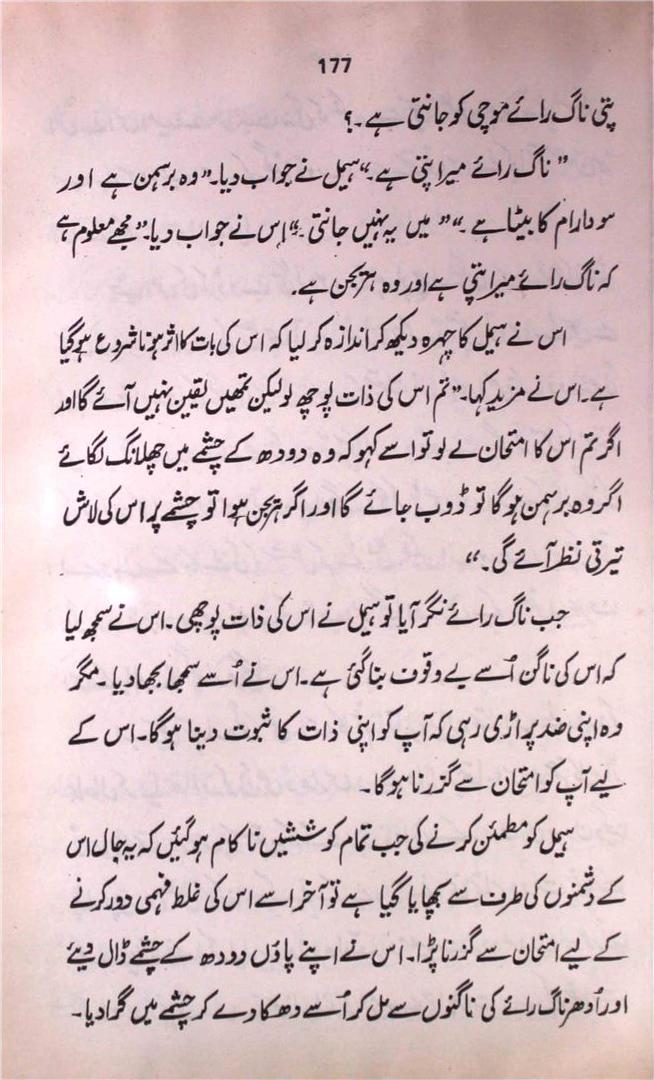 177
پتی ناگ رائے موچی کو جانتی ہے۔؟
” ناگ رائے میرا پتی ہے۔“ ہیمل نے جواب دیا۔ ”وہ برہمن ہے اور
سودا رام کا بیٹا ہے۔“ ” میں یہ نہیں جانتی۔“ اس نے جواب دیا۔ ”مجھے معلوم ہے
کہ ناگ رائے میرا پتی ہے اور وہ ہریجن ہے۔
اس نے ہیمل کا چہرہ دیکھ کر اندازہ کر لیا کہ اس کی بات کا اثر ہونا شروع ہو گیا
ہے۔ اس نے مزید کہا۔ ”تم اس کی ذات پوچھ لو لیکن تمھیں یقین نہیں آئے گا اور
اگر تم اس کا امتحان لے لو تو اسے کہو کہ وہ دودھ کے چشمے میں چھلانگ لگائے
اگر وہ برہمن ہو گا تو ڈوب جائے گا اور اگر ہریجن ہوا تو چشمے پر اس کی لاش
تیرتی نظر آئے گی۔“
جب ناگ رائے نگر آیا تو ہیمل نے اس کی ذات پوچھی۔ اس نے سمجھ لیا
کہ اس کی ناگن اُسے بے وقوف بنا گئی ہے۔ اس نے اُسے سمجھا بجھا دیا۔ مگر
وہ اپنی ضد پر اڑی رہی کہ آپ کو اپنی ذات کا ثبوت دینا ہو گا۔ اس کے
لیے آپ کو امتحان سے گزرنا ہو گا۔
ہیمل کو مطمئن کرنے کی جب تمام کوششیں ناکام ہو گئیں کہ یہ جال اس
کے دشمنوں کی طرف سے بچھایا گیا ہے تو آخر اسے اس کی غلط فہمی دور کرنے
کے لیے امتحان سے گزرنا پڑا۔ اس نے اپنے پاؤں دودھ کے چشمے ڈال دیئے
اور اُدھر ناگ رائے کی ناگنوں سے مل کر اُسے دھکا دے کر چشمے میں گرا دیا۔